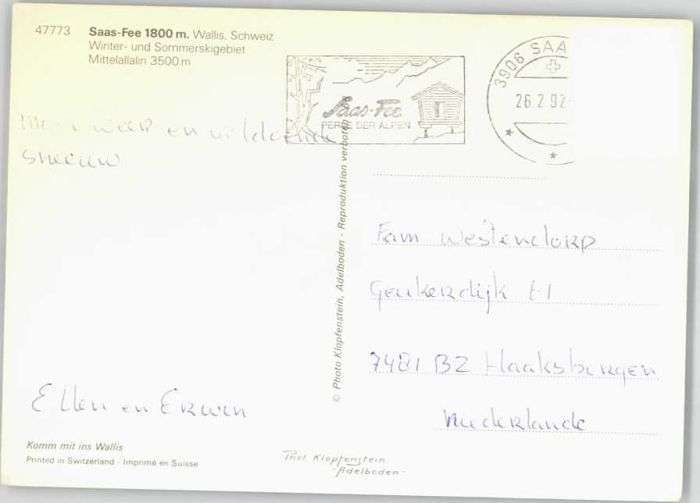 47773
Saas-Fee 1800 m. Wallis, Schweiz
Winter- und Sommerskigebiet
Mittelallalin 3500 m
Saas-Fee
PERLE DER ALPEN
3906 SAA
26.2.92
en
sneeuw
Fam Westendorp
41
7481 BZ Haaksbergen
Nederlande
Ellen en Erwin
© Photo Klopfenstein, Adelboden - Reproduktion verboten
Komm mit ins Wallis
Printed in Switzerland - Imprimé en Suisse
Phot Klopfenstein
- Adelboden -